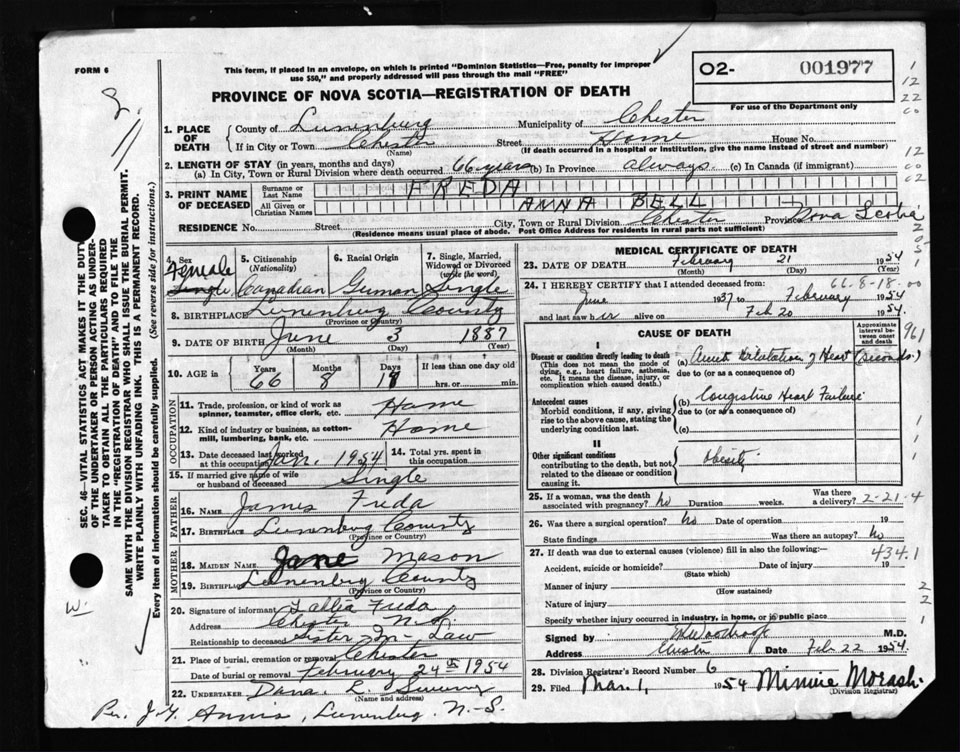 FORM 6
This form, if placed in an envelope, on which is printed "Dominion Statistics—Free, penalty for improper use $50," and properly addressed will pass through the mail "FREE"
02- 001977
For use of the Department only
PROVINCE OF NOVA SCOTIA—REGISTRATION OF DEATH
SEC. 46—VITAL STATISTICS ACT MAKES IT THE DUTY
OF THE UNDERTAKER OR PERSON ACTING AS UNDER-
TAKER TO OBTAIN ALL THE PARTICULARS REQUIRED
IN THE "REGISTRATION OF DEATH" AND TO FILE THE
SAME WITH THE DIVISION REGISTRAR WHO SHALL ISSUE THE BURIAL PERMIT.
WRITE PLAINLY WITH UNFADING INK. THIS IS A PERMANENT RECORD.
Every item of information should be carefully supplied. (See reverse side for instructions.)
1. PLACE OF DEATH County of Lunenburg Municipality of Chester
If in City or Town Chester Street Home House No.
(Name) (If death occurred in a hospital or institution, give the name instead of street and number)
2. LENGTH OF STAY (in years, months and days)
(a) In City, Town or Rural Division where death occurred 66 years (b) In Province always (c) In Canada (if immigrant)
3. PRINT NAME OF DECEASED Surname or Last Name FREDA
All Given or Christian Names ANNA BELL
RESIDENCE No. Street City, Town or Rural Division Chester Province Nova Scotia
(Residence means usual place of abode. Post Office Address for residents in rural parts not sufficient)
4. Sex Female Single
5. Citizenship (Nationality) Canadian
6. Racial Origin German
7. Single, Married, Widowed or Divorced (write the word) Single
8. BIRTHPLACE Lunenburg County
(Province or Country)
9. DATE OF BIRTH June 3 1887
(Month) (Day) (Year)
10. AGE in Years 66 Months 8 Days 18 If less than one day old hrs. or min.
OCCUPATION
11. Trade, profession, or kind of work as spinner, teamster, office clerk, etc. Home
12. Kind of industry or business, as cotton-mill, lumbering, bank, etc. Home
13. Date deceased last worked at this occupation Jan. 1954
14. Total years spent in this occupation
15. If married give name of wife or husband of deceased Single
FATHER
16. Name James Freda
17. Birthplace Lunenburg County
(Province or Country)
MOTHER
18. Maiden Name Jane Mason
19. Birthplace Lunenburg County
(Province or Country)
20. Signature of informant Freda
Address Chester N.S.
Relationship to deceased Sister In Law
21. Place of burial, cremation or removal Chester
Date of burial or removal February 24th 1954
22. UNDERTAKER Dana L.
(Name and address)
Per. Lunenburg. N.S.
MEDICAL CERTIFICATE OF DEATH
23. DATE OF DEATH February 21 1954
(Month) (Day) (Year)
66-8-18-00
24. I HEREBY CERTIFY that I attended deceased from:
June 1937 to February 1954
and last saw her alive on Feb 20 1954.
CAUSE OF DEATH
Approximate interval between onset and death
I
Disease or condition directly leading to death
(This does not mean the mode of dying, e.g., heart failure, asthenia, etc. It means the disease, injury, or complication which caused death.)
(a) Acute Dilatation of Heart (seconds.)
due to (or as a consequence of)
Antecedent causes
Morbid conditions, if any, giving rise to the above cause, stating the underlying condition last.
(b) Congestive Heart Failure
due to (or as a consequence of)
(c)
II
Other significant conditions
contributing to the death, but not related to the disease or condition causing it.
Obesity
25. If a woman, was the death associated with pregnancy? No Duration weeks. Was there a delivery? 2-21-4
26. Was there a surgical operation? No Date of operation 19
State findings Was there an autopsy? No
27. If death was due to external causes (violence) fill in also the following:— 434.1
Accident, suicide or homicide? Date of injury 19
(State which)
Manner of injury
(How sustained)
Nature of injury
Specify whether injury occurred in industry, in home, or in public place
Signed by M.D.
Address Chester Date Feb 22 1954.
28. Division Registrar's Record Number 6
29. Filed Mar. 1, 1954 Minnie Morash
(Division Registrar)